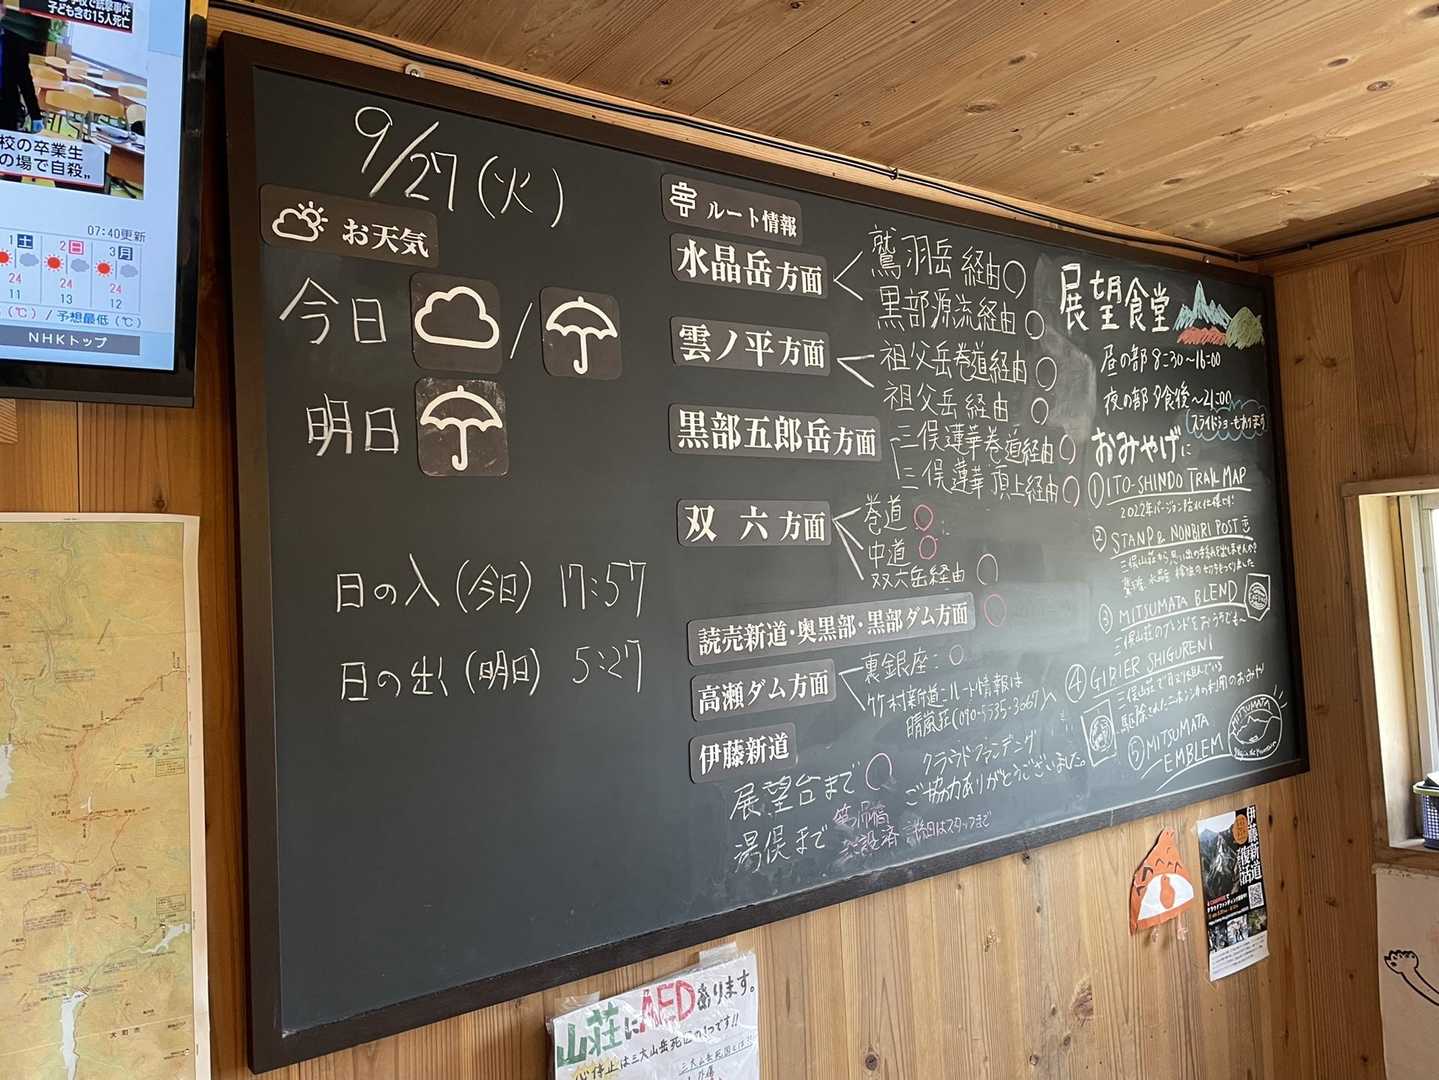 学校で銃撃事件
子ども含む15人死亡
校の卒業生
の場で自殺"
07:40更新
1 土 2 日 3 月
24 24 24
11 13 12
(℃) / 予想最低 (℃)
NHKトップ
9/27 (火)
お天気
今日 /
明日
日の入 (今日) 17:57
日の出 (明日) 5:27
ルート情報
水晶岳方面
鷲羽岳 経由○
黒部源流経由○
雲ノ平方面
祖父岳巻道経由○
祖父岳 経由○
黒部五郎岳方面
三俣蓮華巻道経由○
三俣蓮華頂上経由○
双六方面
巻道○
中道○
双六岳経由○
読売新道・奥黒部・黒部ダム方面○
高瀬ダム方面
裏銀座:○
竹村新道:ルート情報は
晴嵐荘(090-5535-3667)へ
伊藤新道
展望台まで○
湯俣まで
クラウドファンディング
ご協力ありがとうございました。
詳細はスタッフまで
展望食堂
昼の部 8:30〜16:00
夜の部 夕食後〜21:00
スライドショーもあります
おみやげに
① ITO-SHINDO TRAIL MAP
2022年バージョン 防水仕様です
② STANP & NONBIRI POST
三俣山荘から思い出の手紙を出しませんか?
③ MITSUMATA BLEND
三俣山荘のブレンドをおうちでも〜
④ GIBIER SHIGURENI
駆除されたニホンジカ利用のおみや
⑤ MITSUMATA
EMBLEM
MITSUMATA
山荘にAEDあります。
心停止は三大山岳死因の1つです!!
三大山岳死因とは?!
伊藤新道
復古
大町市